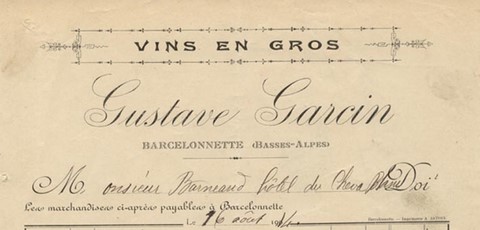 VINS EN GROS
Gustave Garcin
BARCELONNETTE (BASSES-ALPES)
M onsieur Barneaud hôtel du Cheval Doit
Les marchandises ci-après payables à Barcelonnette
Le 16 août